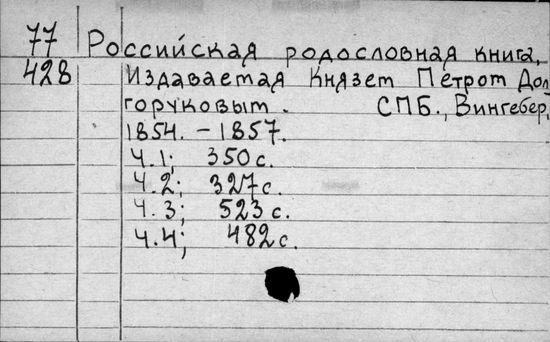 77 Российская родословная книга,
428 Издаваемая Князем Петром Дол
горуковым. СПБ., Вингебер,
1854. - 1857.
Ч.1; 350 с.
Ч.2; 327 с.
Ч.3; 523 с.
Ч.4; 482 с.